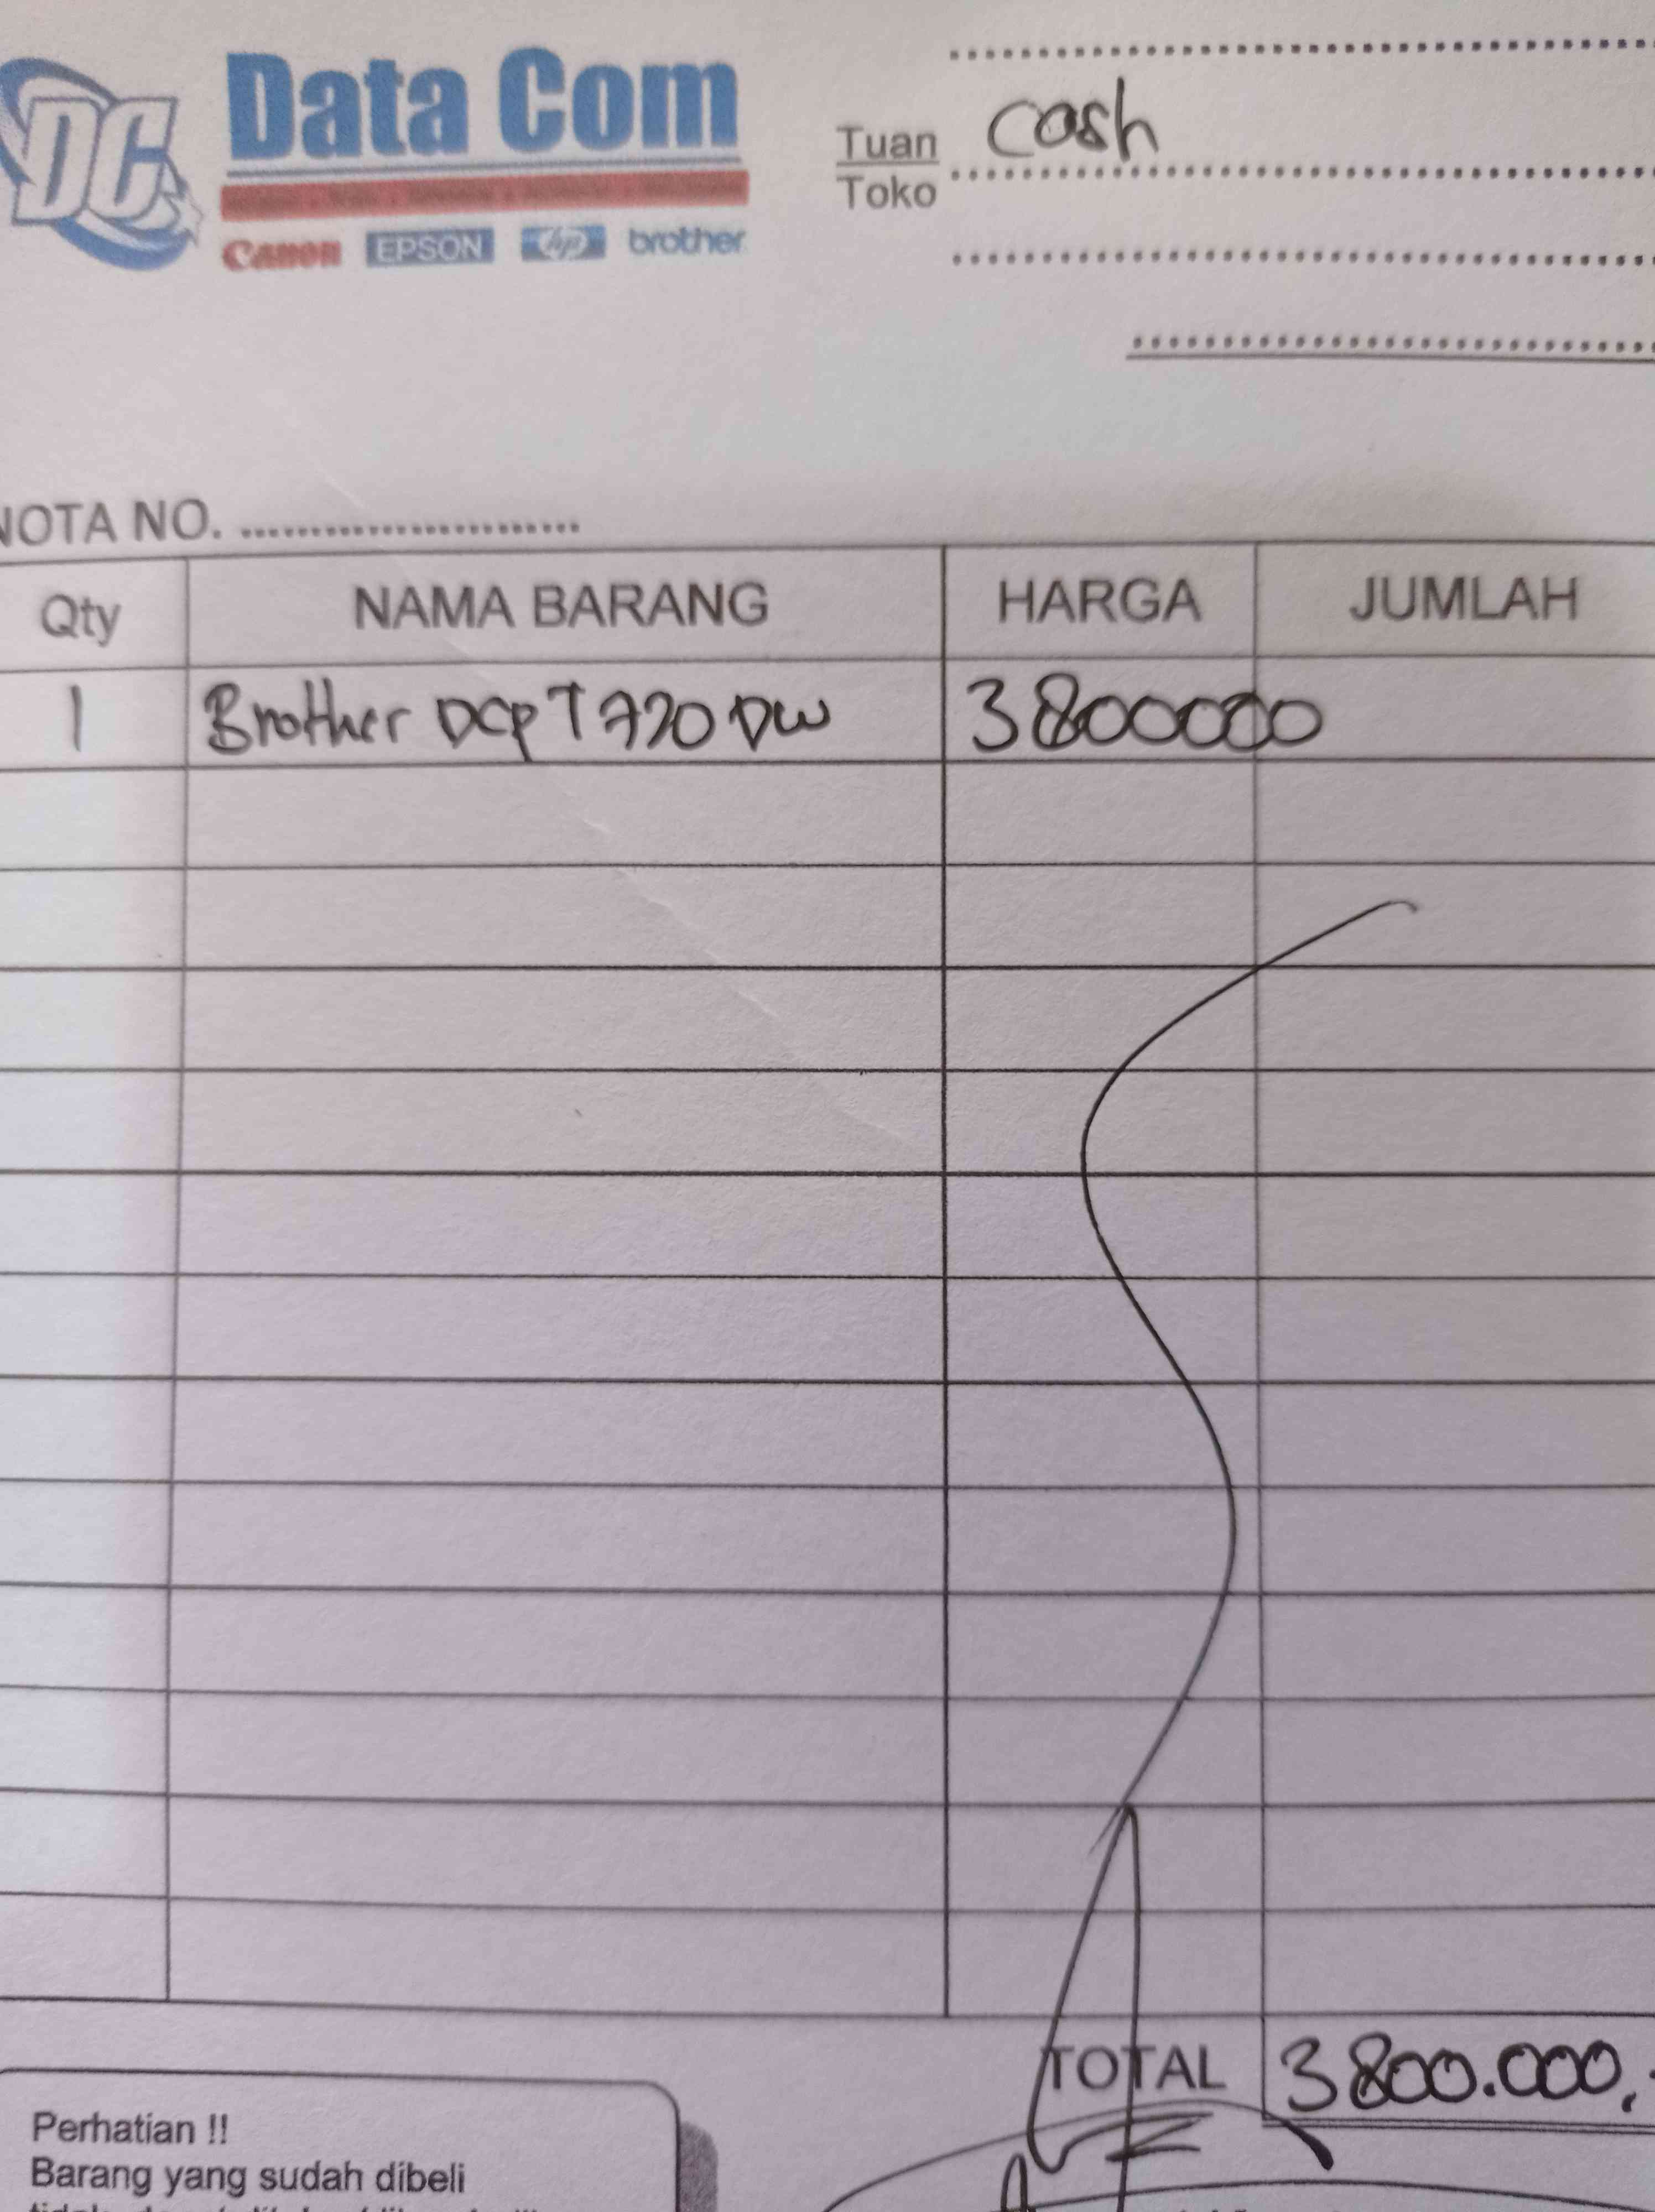 DC Data Com
Canon EPSON hp brother
Tuan cash
Toko
NOTA NO. ........................
Qty NAMA BARANG HARGA JUMLAH
1 Brother DCP T720 DW 3800000
TOTAL 3800.000,-
Perhatian !!
Barang yang sudah dibeli